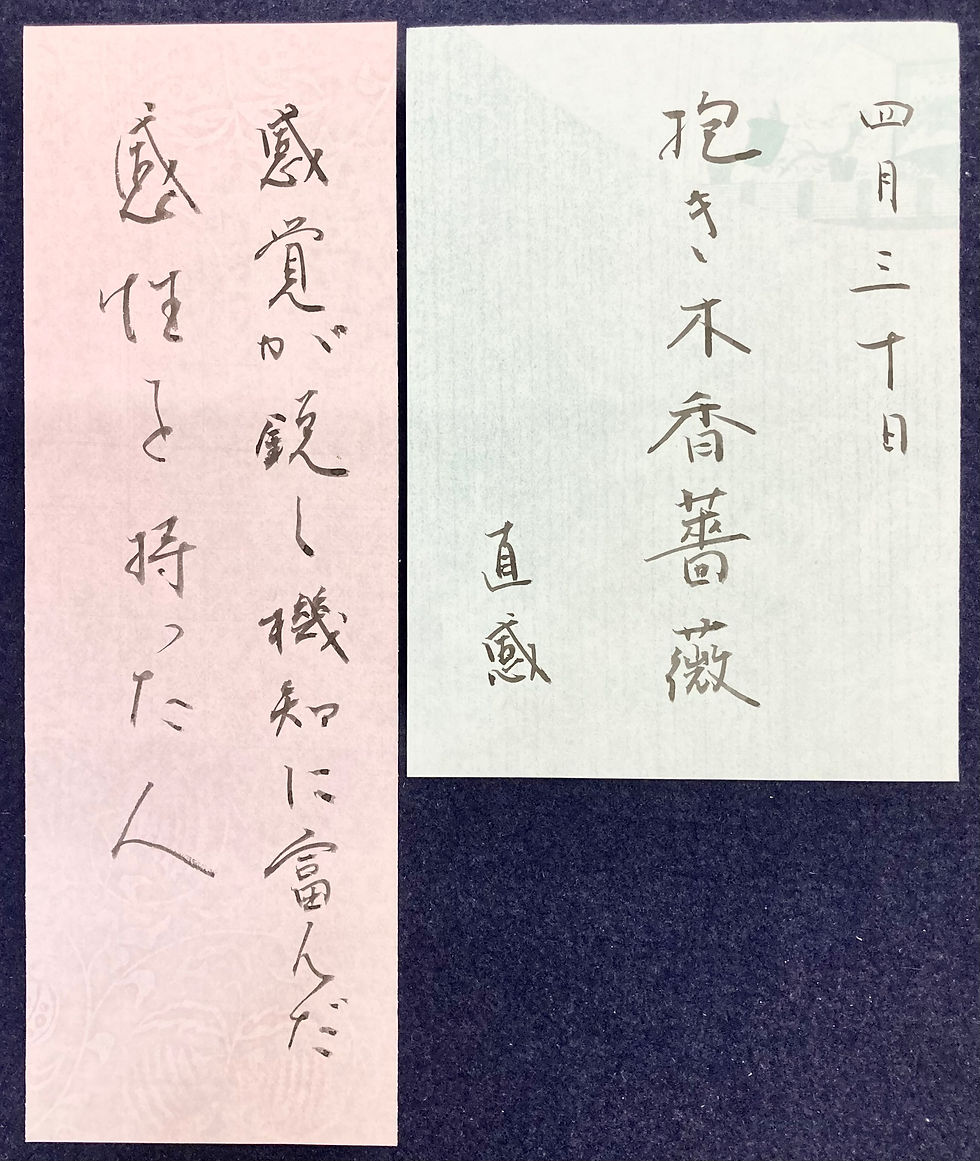 四月三十日
抱き木香薔薇
直感
感覚が鋭し機知に富んだ
感性を持った人